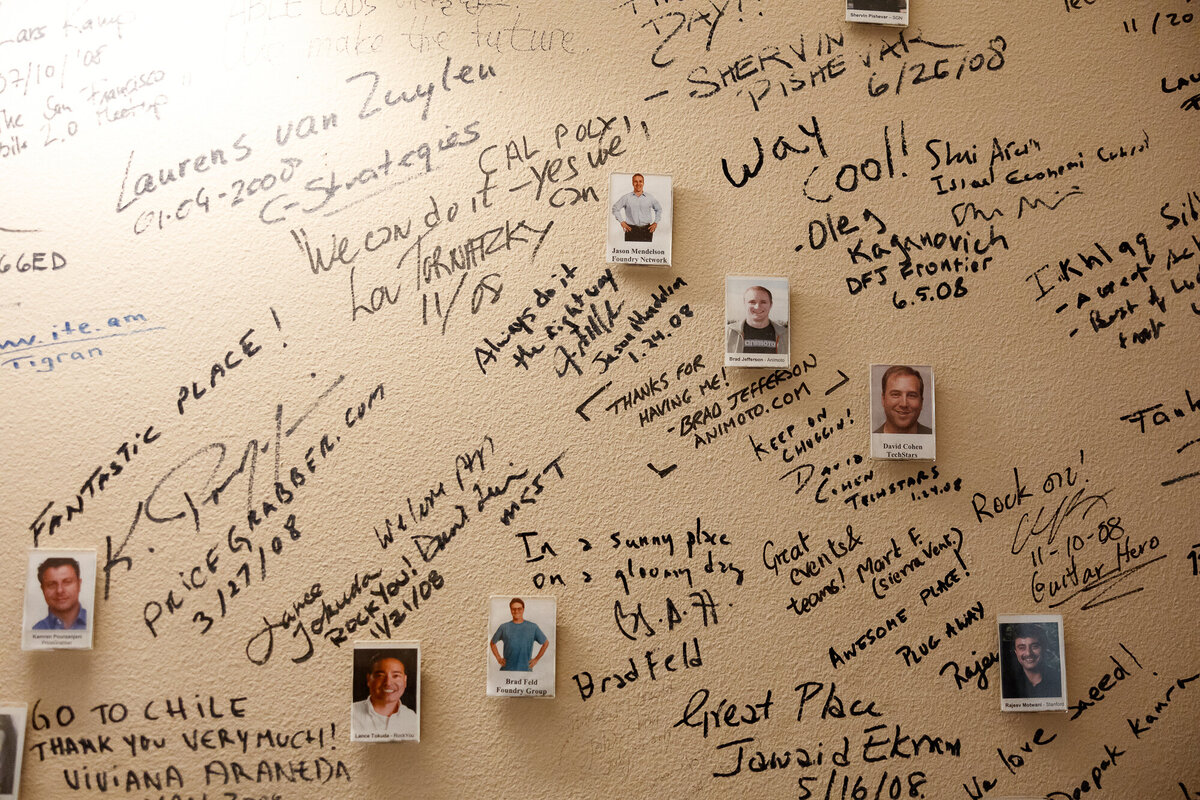 Lars Kamp
07/10/'08
The San Francisco
Mobile 2.0 Meetup
We make the future
DAY!!
- SHERVIN
PISHEVAR
6/26/08
Shervin Pishevar - SGN
11/20
Laurens van Zuylen
01-04-2008
C-Strategies
CAL POLY!!
"We can do it - yes we
can
Lou TORNATZKY
11/08
Jason Mendelson
Foundry Network
Always do it
the right way
Jason Mendelson
1.24.08
WAY
COOL!
- Oleg
Kaganovich
DFJ Frontier
6.5.08
Israel Economic
I. Khlaq
GGED
ite.am
Tigran
FANTASTIC PLACE!
PRICEGRABBER.COM
3/27/08
Kamran Pourzanjani
PriceGrabber
Brad Jefferson - Animoto
ANIMOTO
THANKS FOR
HAVING ME!
- BRAD JEFFERSON
ANIMOTO.COM
David Cohen
TechStars
KEEP ON
CHUGGIN!
DAVID
COHEN
TECHSTARS
1.24.08
Welcome
Lance
Tokuda
ROCKYOU!
11/21/08
Lance Tokuda - RockYou
In a sunny place
on a gloomy day
Brad Feld
Brad Feld
Foundry Group
Great
events &
teams! Mark F.
(Sierra Vent.)
Rock on!
11-10-08
Guitar Hero
AWESOME PLACE!
PLUG AWAY
Rajeev
Rajeev Motwani - Stanford
GO TO CHILE
THANK YOU VERY MUCH!
VIVIANA ARANEDA
Great Place
Jawaid Ekram
5/16/08
We love Saeed!
Deepak